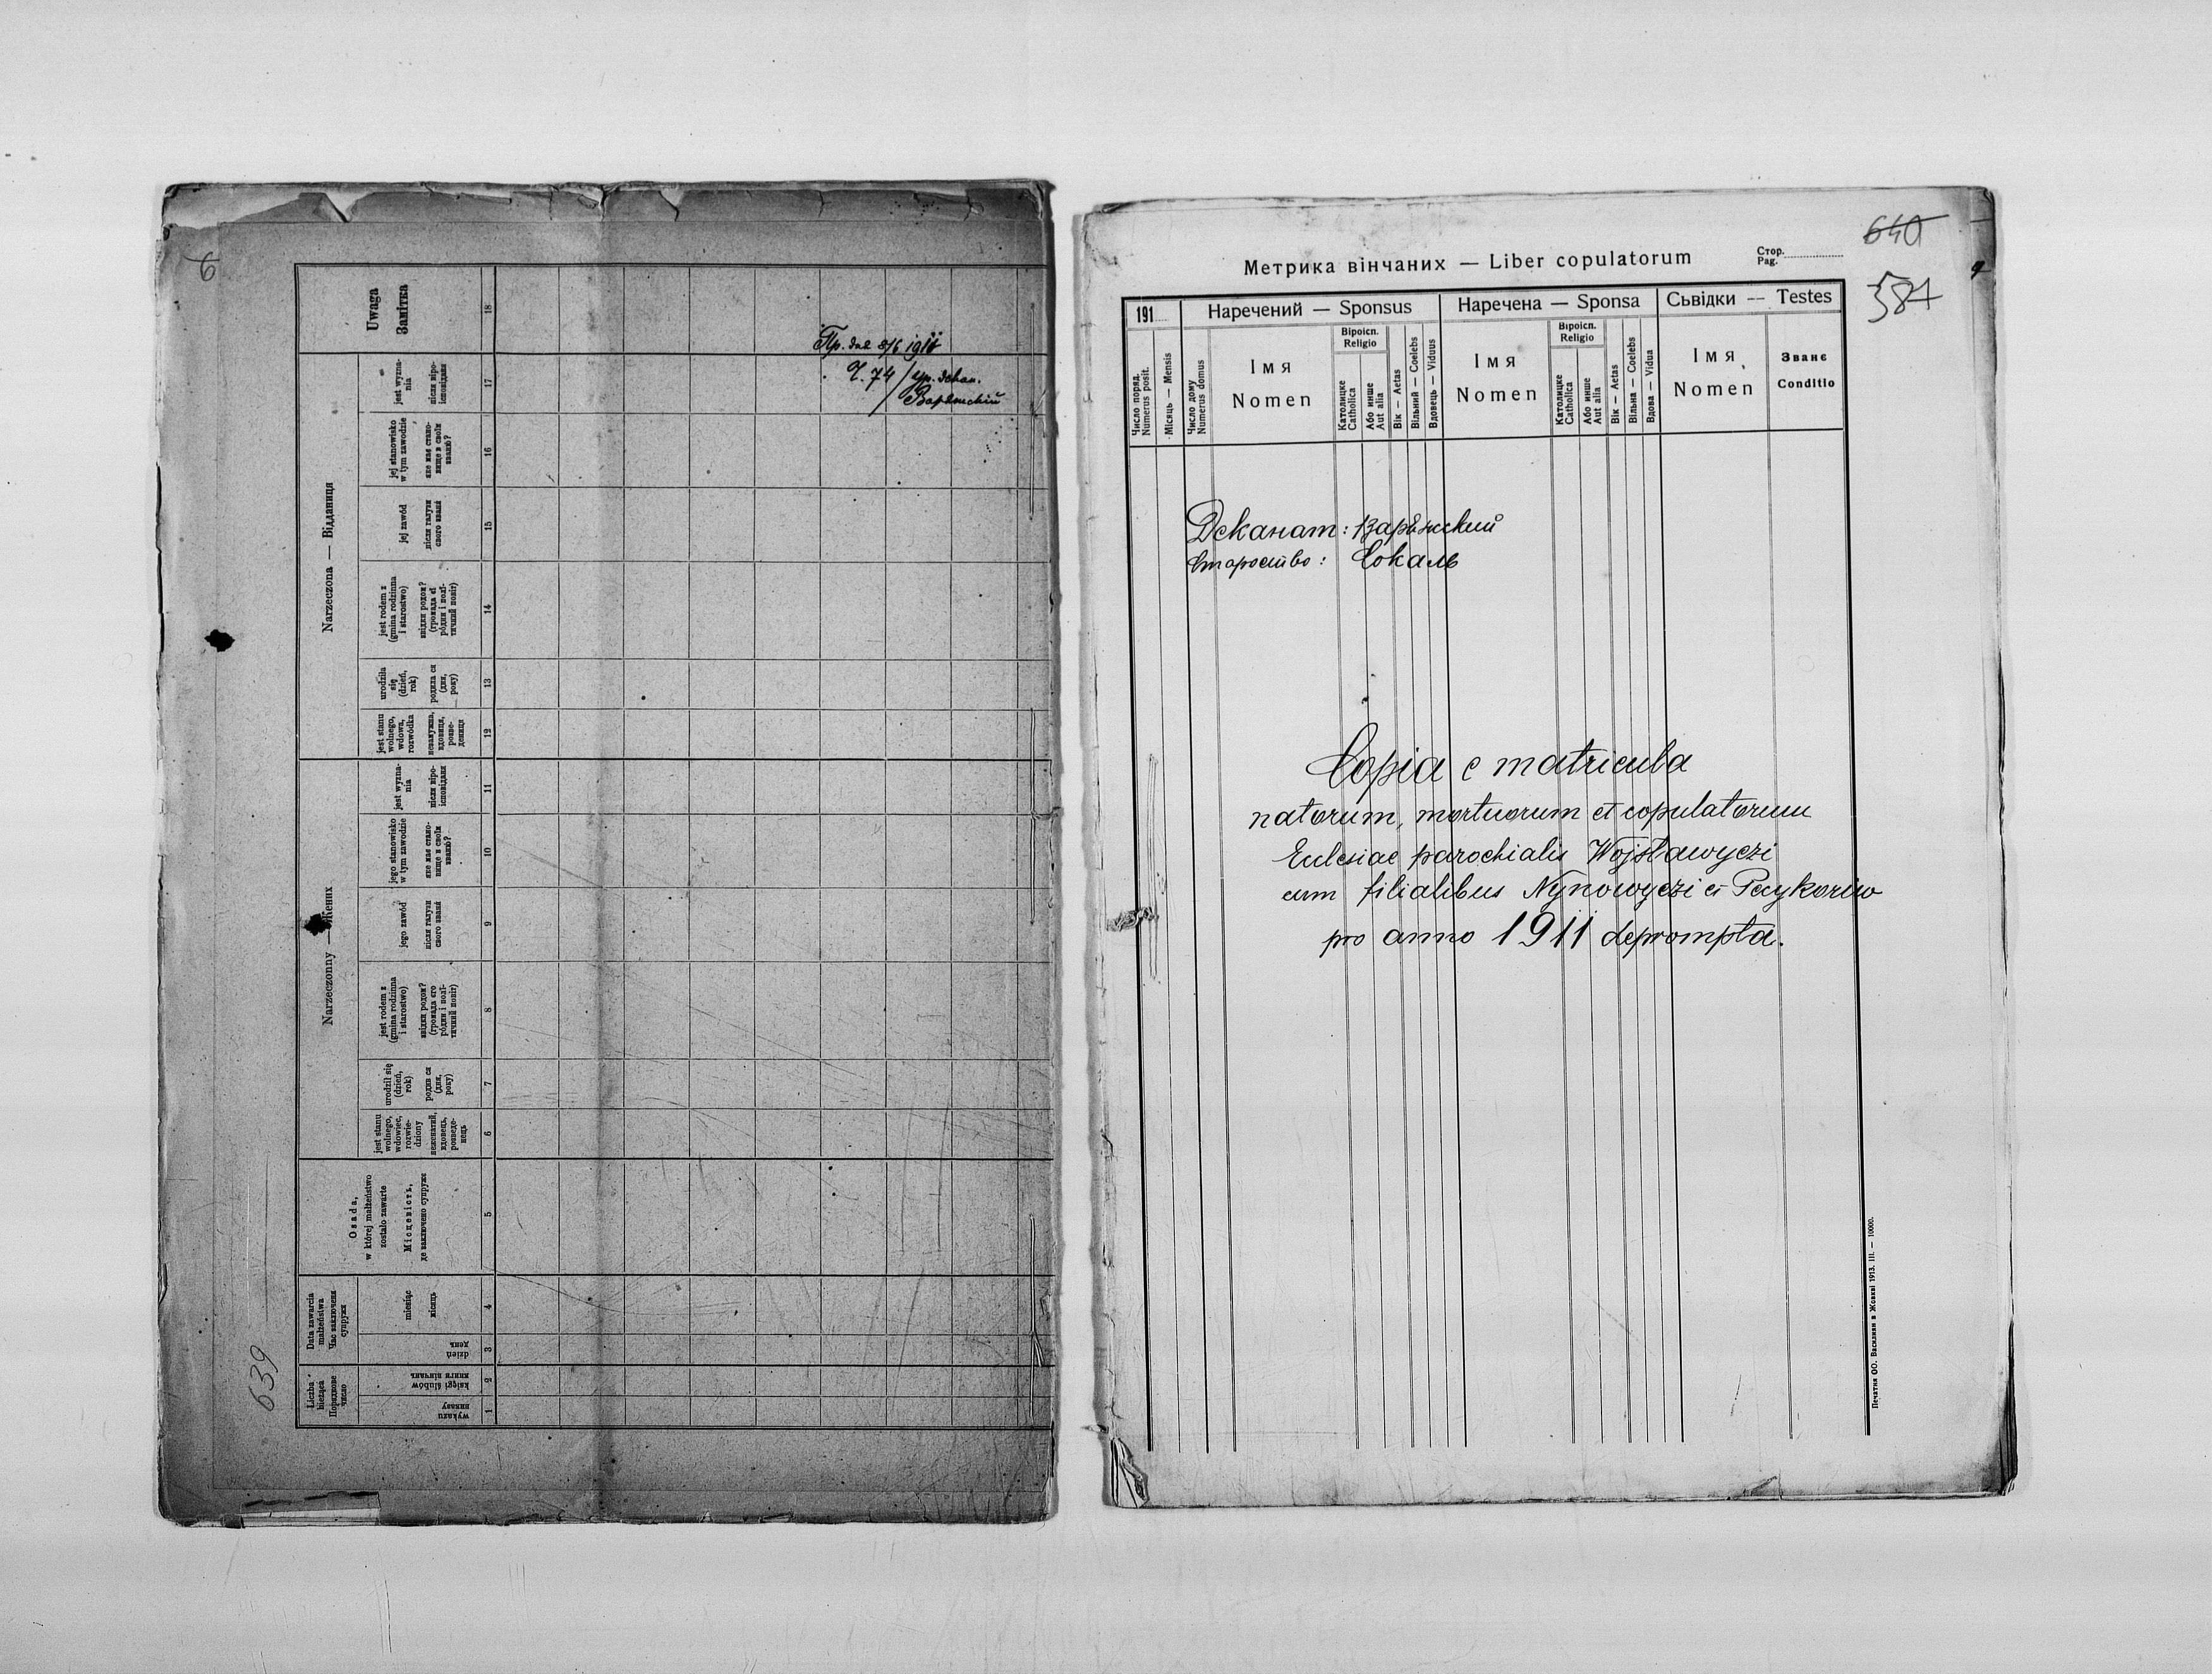 6
Uwaga
Замітка
18
Narzeczona — Відданиця
jest wyzna-
nia
після віро-
ісповіданя
17
jej stanowisko
w tym zawodzie
яке має стано-
вище в своїм
званю?
16
jej zawód
після галузи
свого званя
15
jest rodem z
(gmina rodzinna
i starostwo)
звідки родом?
(громада єї
рóдни і полї-
тичний повіт)
14
urodziła
się
(dzień,
rok)
родила ся
(дня,
року)
13
jest stanu
wolnego,
wdowa,
rozwódka
незамужна,
вдовиця,
розве-
дениця
12
Narzeczonny — Жених
jest wyzna-
nia
після віро-
ісповіданя
11
jego stanowisko
w tym zawodzie
яке має стано-
вище в своїм
званю?
10
jego zawód
після галузи
свого званя
9
jest rodem z
(gmina rodzinna
i starostwo)
звідки родом?
(громада єго
рóдни і полї-
тичний повіт)
8
urodził się
(dzień,
rok)
родив ся
(дня,
року)
7
jest stanu
wolnego,
wdowiec,
rozwie-
dziony
неженатий,
вдовець,
розведе-
нець
6
Osada,
w której małżeństwo
zostało zawarte
Місцевість,
де заключено супруже
5
Data zawarcia
małżeństwa
Час заключеня
супружа
miesiąc
місяць
4
dzień
день
3
Liczba
bieżąca
Порядкове
число
księgi ślubów
книги вінчань
2
wykazu
виказу
1
639
Пр. дня 8/6 191
Ч. 74 / Ур. декан.
Варяжский
640
584
Метрика вінчаних — Liber copulatorum
Стор.
Pag.
191
Наречений — Sponsus
Наречена — Sponsa
Сьвідки — Testes
Число поряд.
Numerus posit.
Місяць — Mensis
Число дому
Numerus domus
Імя
Nomen
Віроісп.
Religio
Католицке
Catholica
Або инше
Aut alia
Вік — Aetas
Вільний — Coelebs
Вдовець — Viduus
Імя
Nomen
Віроісп.
Religio
Католицке
Catholica
Або инше
Aut alia
Вік — Aetas
Вільна — Coelebs
Вдова — Vidua
Імя
Nomen
Званє
Conditio
Деканат: Варѣжский
Староство: Сокаль
Copia e matricula
natorum, mortuorum et copulatorum
Eclesiae parochialis Wojsławyczi
cum filialibus Nynowyczi et Pecykoriw
pro anno 1911 deprompta.
Печатня ОО. Василиян в Жовкві 1913. III. — 10000.